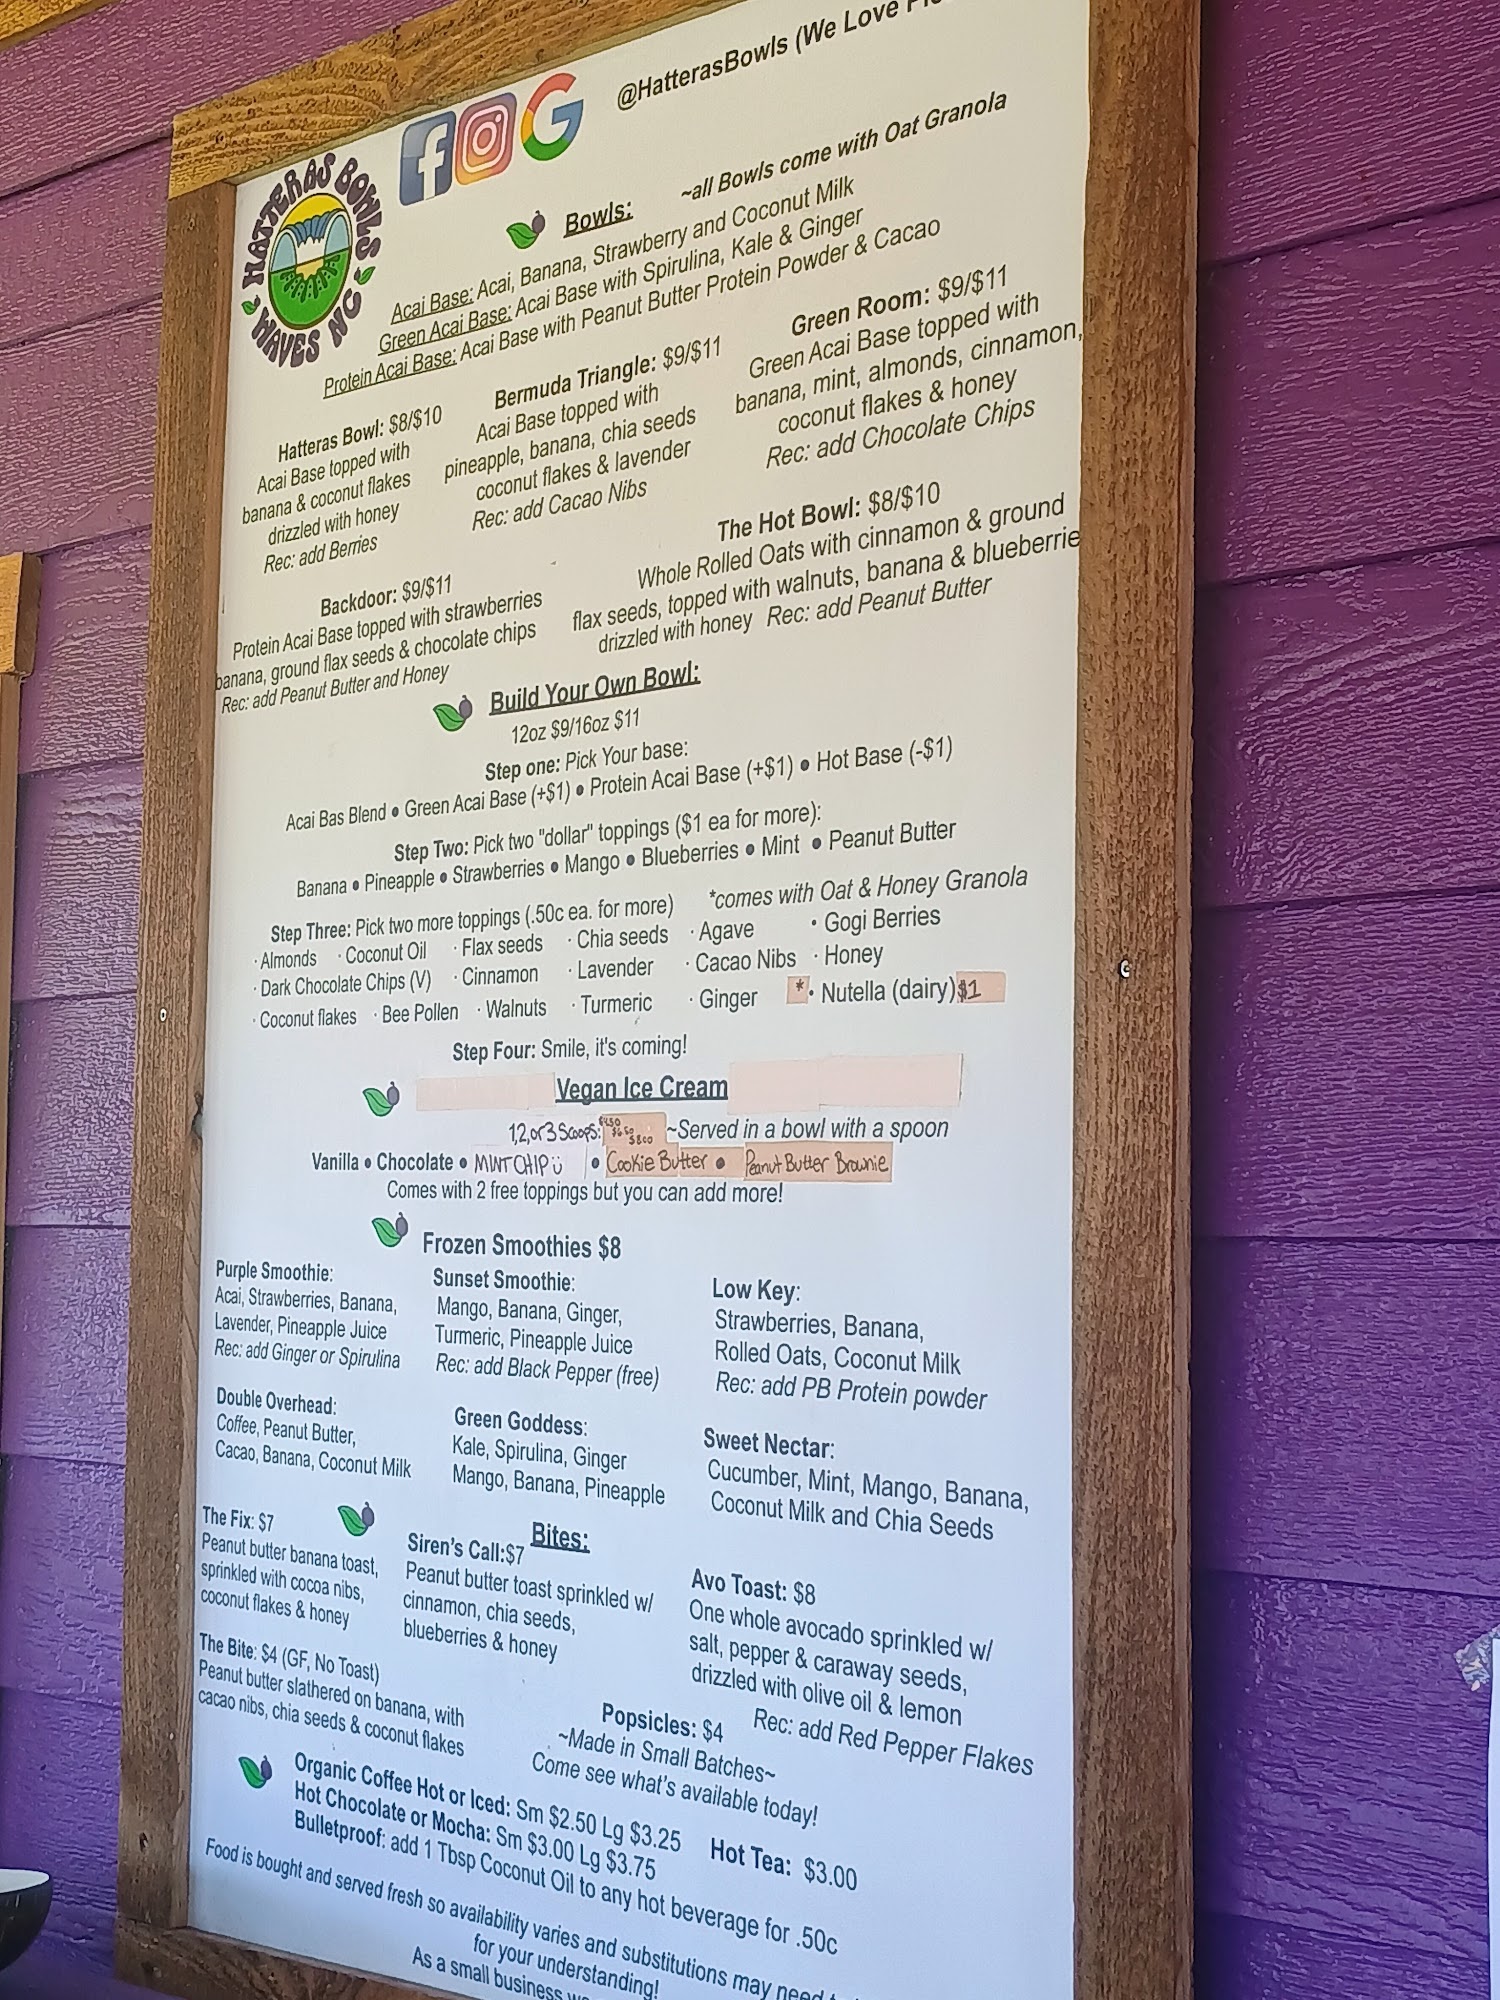 @HatterasBowls (We Love
HATTERAS BOWLS
WAVES NC
Bowls: ~all Bowls come with Oat Granola
Acai Base: Acai, Banana, Strawberry and Coconut Milk
Green Acai Base: Acai Base with Spirulina, Kale & Ginger
Protein Acai Base: Acai Base with Peanut Butter Protein Powder & Cacao
Hatteras Bowl: $8/$10
Acai Base topped with
banana & coconut flakes
drizzled with honey
Rec: add Berries
Bermuda Triangle: $9/$11
Acai Base topped with
pineapple, banana, chia seeds
coconut flakes & lavender
Rec: add Cacao Nibs
Green Room: $9/$11
Green Acai Base topped with
banana, mint, almonds, cinnamon,
coconut flakes & honey
Rec: add Chocolate Chips
Backdoor: $9/$11
Protein Acai Base topped with strawberries
banana, ground flax seeds & chocolate chips
Rec: add Peanut Butter and Honey
The Hot Bowl: $8/$10
Whole Rolled Oats with cinnamon & ground
flax seeds, topped with walnuts, banana & blueberrie
drizzled with honey Rec: add Peanut Butter
Build Your Own Bowl:
12oz $9/16oz $11
Step one: Pick Your base:
Acai Bas Blend • Green Acai Base (+$1) • Protein Acai Base (+$1) • Hot Base (-$1)
Step Two: Pick two "dollar" toppings ($1 ea for more):
Banana • Pineapple • Strawberries • Mango • Blueberries • Mint • Peanut Butter
Step Three: Pick two more toppings (.50c ea. for more) *comes with Oat & Honey Granola
· Almonds · Coconut Oil · Flax seeds · Chia seeds · Agave · Gogi Berries
· Dark Chocolate Chips (V) · Cinnamon · Lavender · Cacao Nibs · Honey
· Coconut flakes · Bee Pollen · Walnuts · Turmeric · Ginger *· Nutella (dairy) $1
Step Four: Smile, it's coming!
Vegan Ice Cream
1,2,or 3 Scoops: $4.50 $6.50 $8.00 ~Served in a bowl with a spoon
Vanilla • Chocolate • MINT CHIP ü • Cookie Butter • Peanut Butter Brownie
Comes with 2 free toppings but you can add more!
Frozen Smoothies $8
Purple Smoothie:
Acai, Strawberries, Banana,
Lavender, Pineapple Juice
Rec: add Ginger or Spirulina
Sunset Smoothie:
Mango, Banana, Ginger,
Turmeric, Pineapple Juice
Rec: add Black Pepper (free)
Low Key:
Strawberries, Banana,
Rolled Oats, Coconut Milk
Rec: add PB Protein powder
Double Overhead:
Coffee, Peanut Butter,
Cacao, Banana, Coconut Milk
Green Goddess:
Kale, Spirulina, Ginger
Mango, Banana, Pineapple
Sweet Nectar:
Cucumber, Mint, Mango, Banana,
Coconut Milk and Chia Seeds
Bites:
The Fix: $7
Peanut butter banana toast,
sprinkled with cocoa nibs,
coconut flakes & honey
Siren's Call:$7
Peanut butter toast sprinkled w/
cinnamon, chia seeds,
blueberries & honey
Avo Toast: $8
One whole avocado sprinkled w/
salt, pepper & caraway seeds,
drizzled with olive oil & lemon
Rec: add Red Pepper Flakes
The Bite: $4 (GF, No Toast)
Peanut butter slathered on banana, with
cacao nibs, chia seeds & coconut flakes
Popsicles: $4
~Made in Small Batches~
Come see what's available today!
Organic Coffee Hot or Iced: Sm $2.50 Lg $3.25
Hot Chocolate or Mocha: Sm $3.00 Lg $3.75
Hot Tea: $3.00
Bulletproof: add 1 Tbsp Coconut Oil to any hot beverage for .50c
Food is bought and served fresh so availability varies and substitutions may need
for your understanding!
As a small business